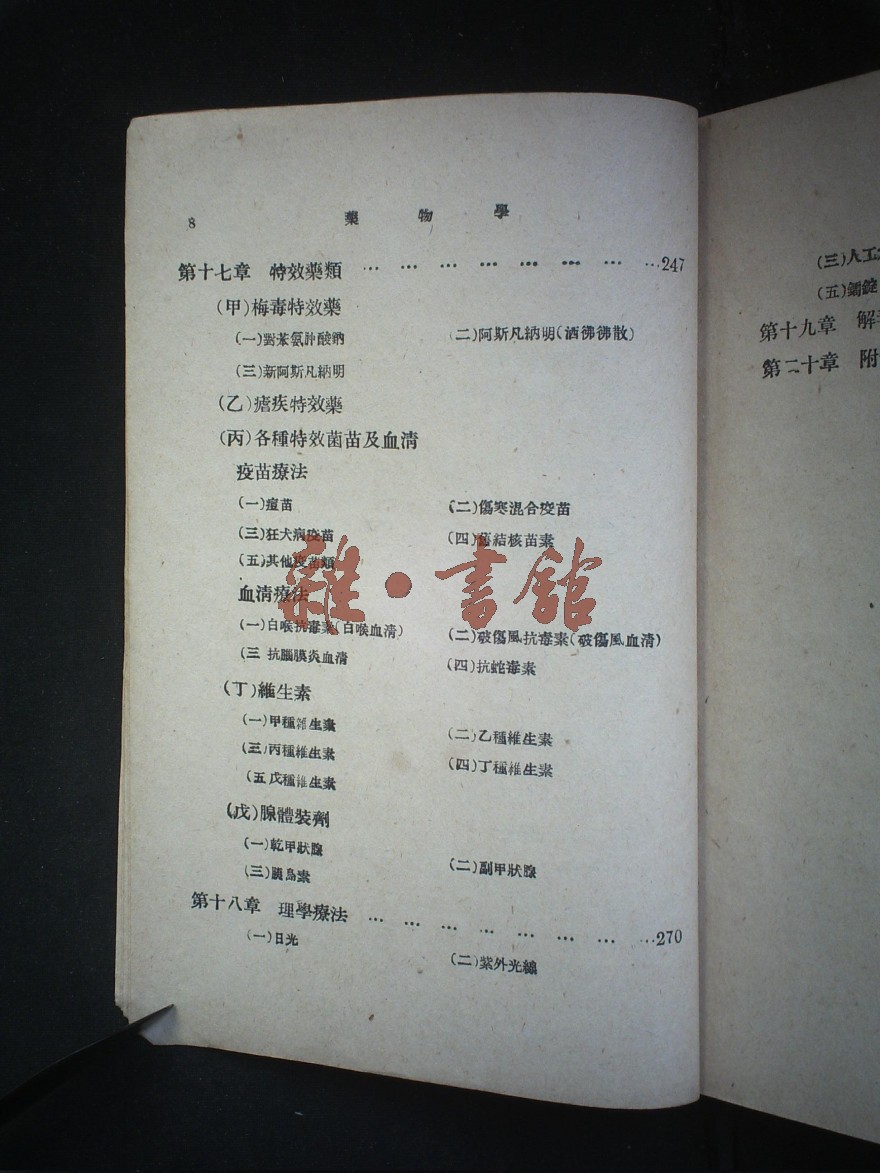 8 藥物學
第十七章 特效藥類 … … … … … … … …247
(甲)梅毒特效藥
(一)對苯氨胂酸鈉 (二)阿斯凡納明(洒彿彿散)
(三)新阿斯凡納明
(乙)瘧疾特效藥
(丙)各種特效菌苗及血清
疫苗療法
(一)痘苗 (二)傷寒混合疫苗
(三)狂犬病疫苗 (四)舊結核苗素
(五)其他疫苗類
血清療法
(一)白喉抗毒素(白喉血清) (二)破傷風抗毒素(破傷風血清)
(三 抗腦膜炎血清 (四)抗蛇毒素
(丁)維生素
(一)甲種維生素 (二)乙種維生素
(三)丙種維生素 (四)丁種維生素
(五 戊種維生素
(戊)腺體裝劑
(一)乾甲狀腺 (二)副甲狀腺
(三)胰島素
第十八章 理學療法 … … … … … … … …270
(一)日光 (二)紫外光線
雜·書館
(三)人工
(五)鐳錠
第十九章 解
第二十章 附